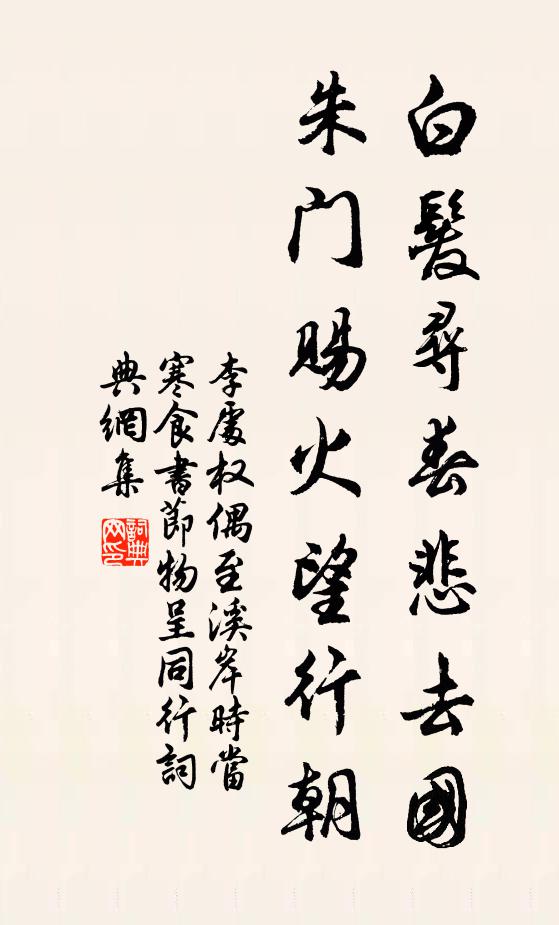 白髮尋春悲去國
朱門賜火望行朝
李處权偶至溪岸時當
寒食書節物呈同行詞
典網集
詞典
网印